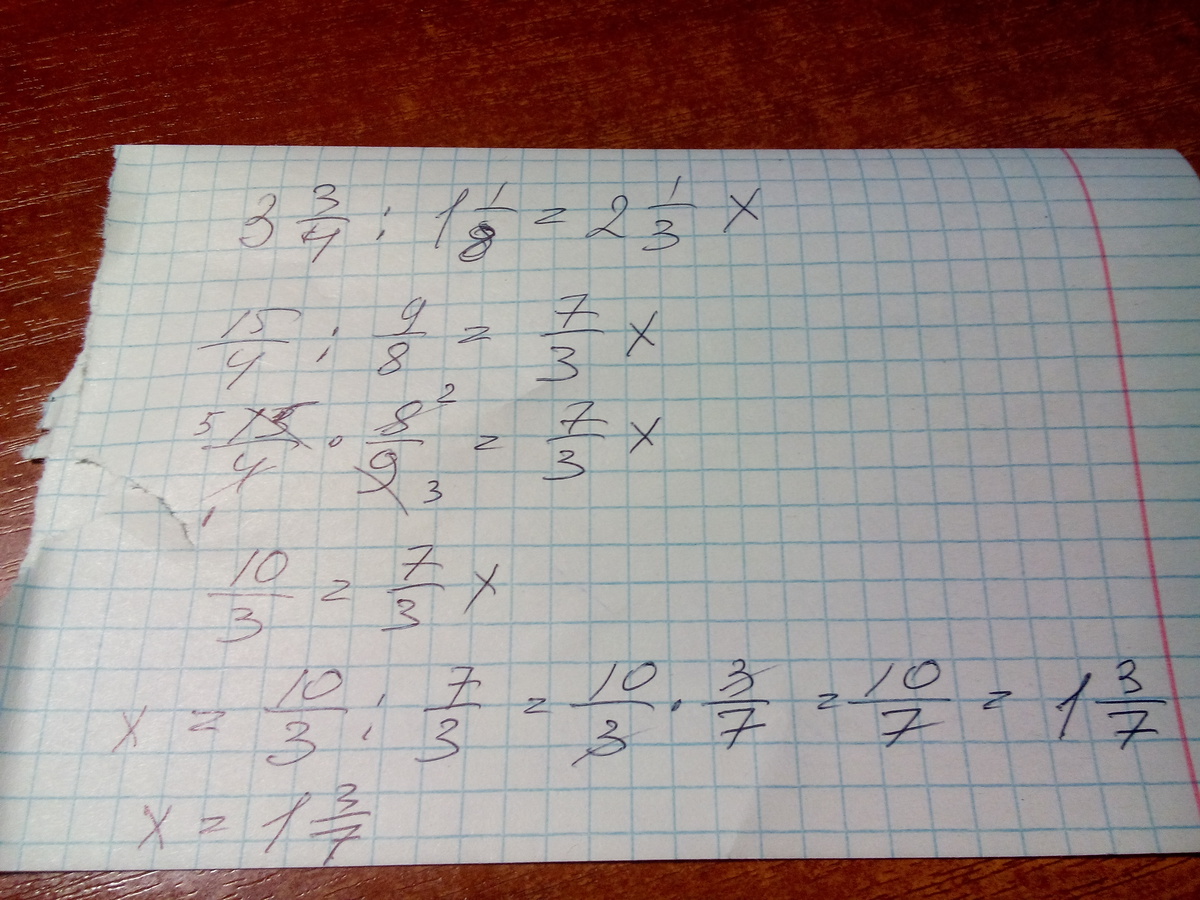 3 3/4 : 1 1/8 = 2 1/3 x
15/4 : 9/8 = 7/3 x
5 15/4 1 · 8 2/9 3 = 7/3 x
10/3 = 7/3 x
x = 10/3 : 7/3 = 10/3 · 3/7 = 10/7 = 1 3/7
x = 1 3/7